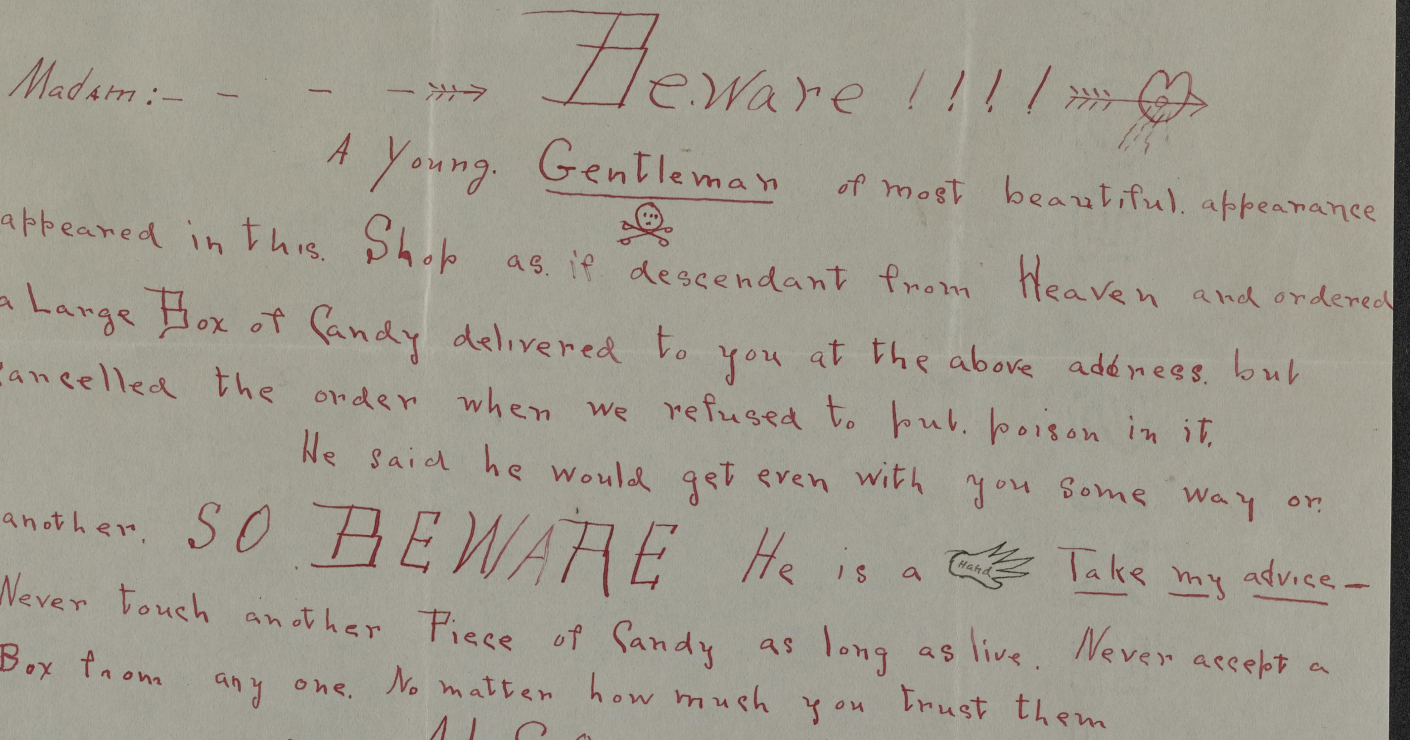 Madam:- - - - Beware !!!!
A Young. Gentleman of most beautiful. appearance
appeared in this. Shop as. if descendant from Heaven and ordered
a Large Box of Candy delivered to you at the above address. but
cancelled the order when we refused to put. poison in it.
He said he would get even with you some way or.
another. SO BEWARE He is a Hand Take my advice —
Never touch another Piece of Candy as long as live. Never accept a
Box from any one. No matter how much you trust them